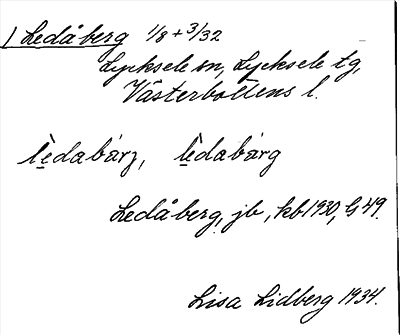 1 Ledåberg 1/8 + 3/32
Lycksele sn, Lycksele tg,
Västerbottens l.
lèdabárʒ, lèdabárg
Ledåberg, jb, kb 1930, G 49.
Lisa Lidberg 1934.